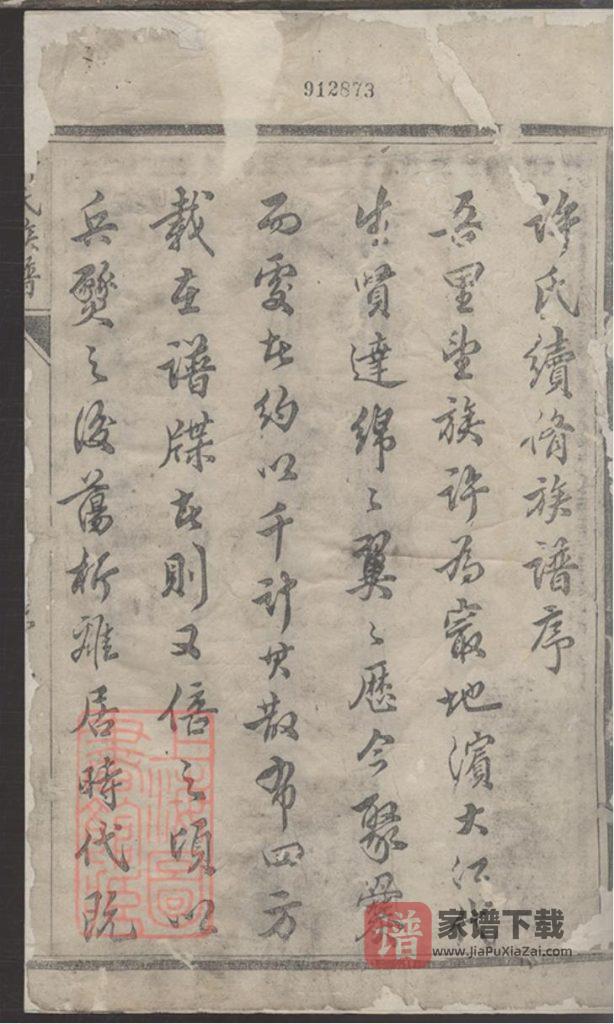 912873
許氏續脩族譜序
吾里望族許為最地濱大江
生賢達綿〻翼〻歷今聚
而處者約以千計其散布四方
載在譜牒者則又倍之頃以
兵燹之後蕩析離居時代既
氏族譜
家谱下载
www.JiaPuXiaZai.com
谱